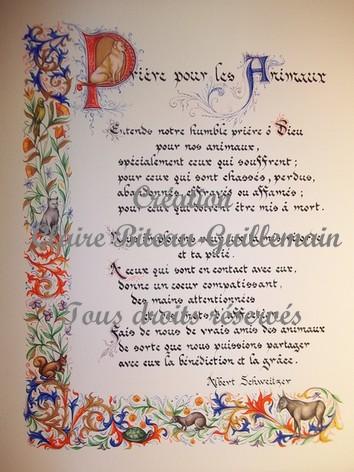 Prière pour les Animaux
Entends notre humble prière ô Dieu
pour nos animaux,
spécialement ceux qui souffrent ;
pour ceux qui sont chassés, perdus,
abandonnés, effrayés ou affamés ;
pour ceux qui doivent être mis à mort.
Nous implorons pour eux ta miséricorde
et ta pitié.
A ceux qui sont en contact avec eux,
donne un coeur compatissant,
des mains attentionnées
et des mots d'affection.
Fais de nous de vrais amis des animaux
de sorte que nous puissions partager
avec eux la bénédiction et la grâce.
Albert Schweitzer
Création
Claire
Tous droits réservés